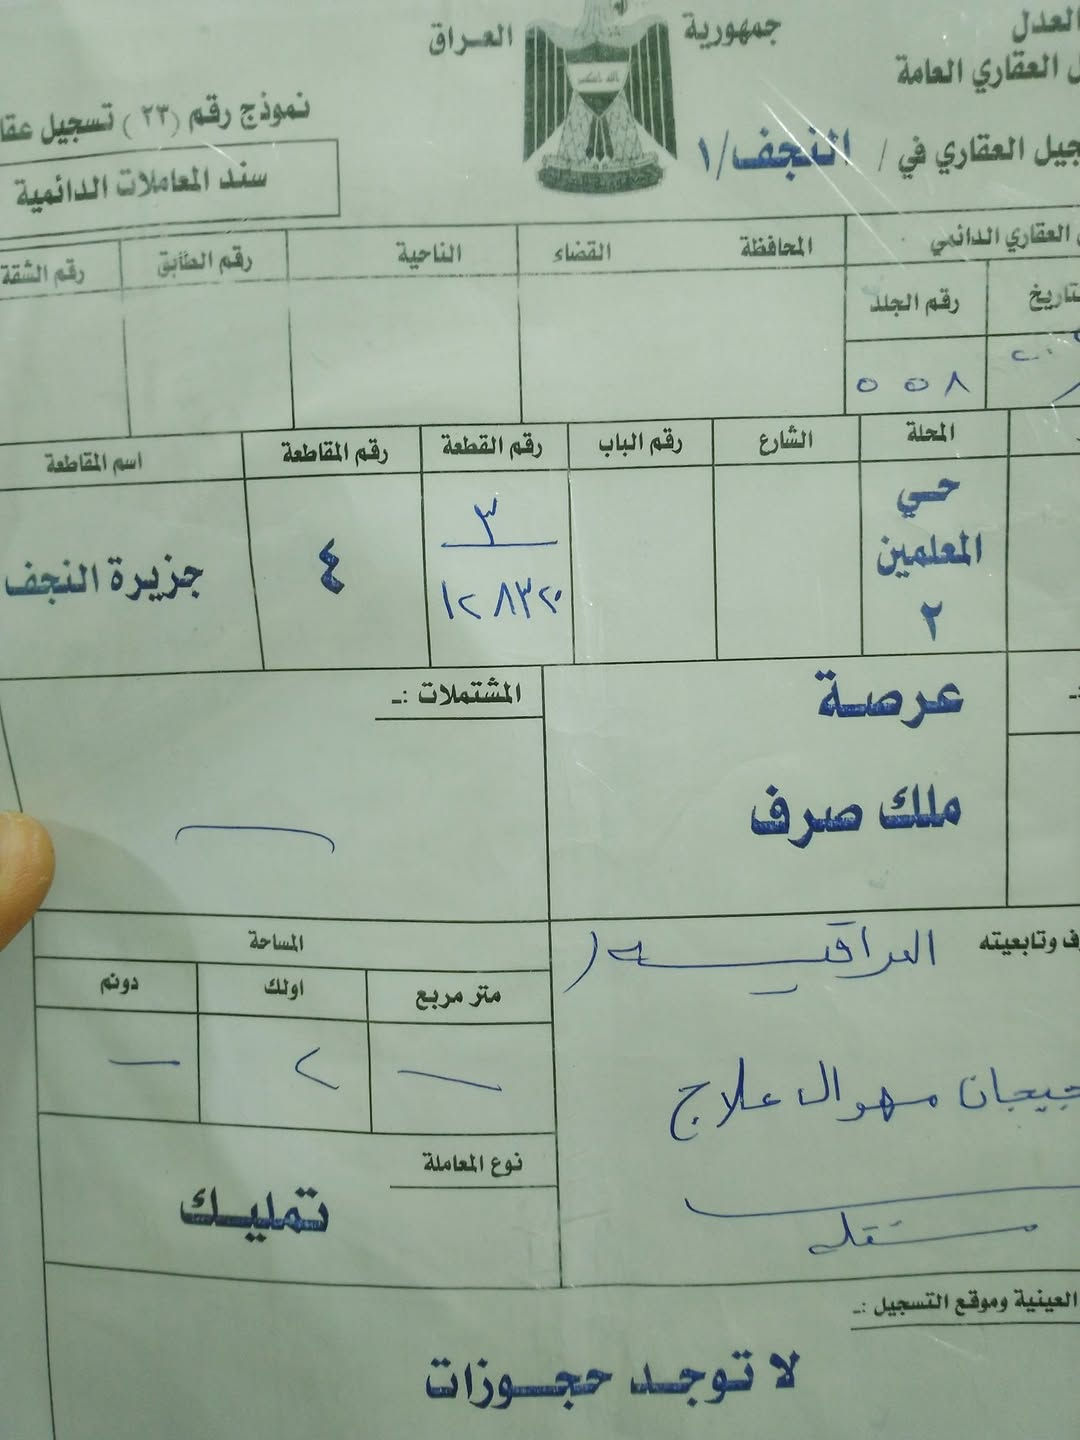 العدل
جمهورية العراق
العقاري العامة
العقاري في / النجف/١
نموذج رقم (٢٣) تسجيل
سند المعاملات الدائمية
العقاري الدائمي
المحافظة القضاء الناحية رقم الطابق رقم الشقة
رقم الجلد
٥٥٨
المحلة الشارع رقم الباب رقم القطعة رقم المقاطعة اسم المقاطعة
حي المعلمين ٢
٣
٤
جزيرة النجف
عرصة
ملك صرف
المشتملات :ـ
وتابعيته العراقية
مهوال علاج
مستقلة
المساحة
متر مربع اولك دونم
٢
نوع المعاملة
تمليك
العينية وموقع التسجيل :ـ
لا توجد حجوزات